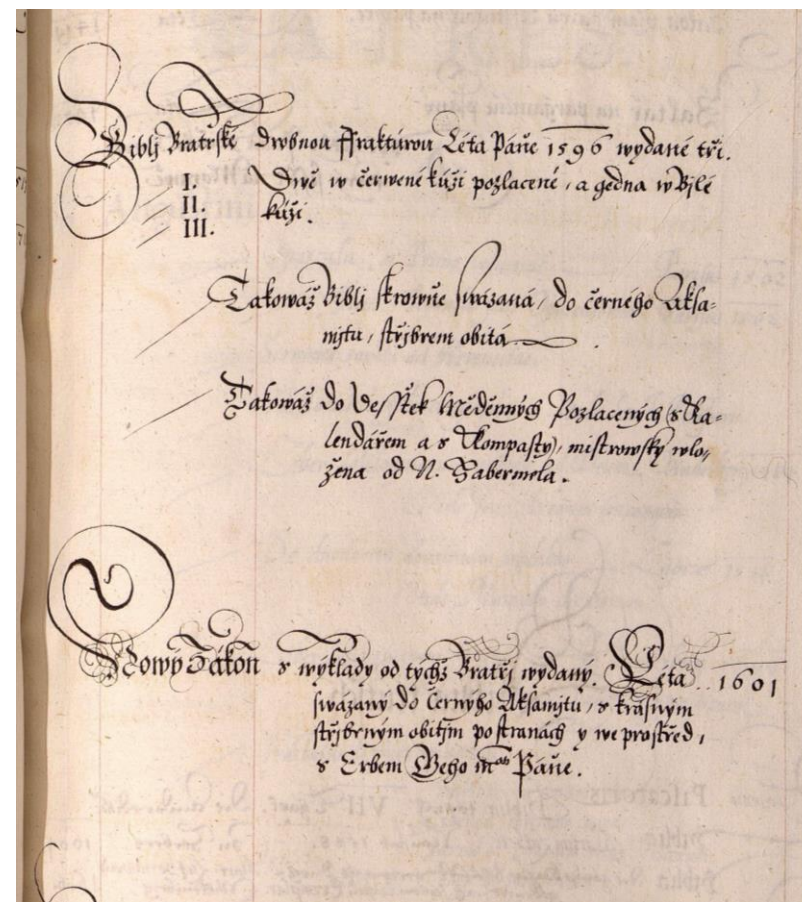 Biblj Bratřské drobnou Ffraktúrou Léta Páně 1596 wydané tři.
I. Dwě w čerwené kúži pozlacené, a gedna w Bjlé
II. kúži.
III.
Takowáž Biblj skrowňe swázaná, do černého Aksa-
mjtu, střjbrem obitá.
Takowáž do Desstek Měděnných Pozlacených (s Ka-
lendářem a s Kompasty), mistrowsky wlo-
žena od N. Habermela.
Nowý Zákon s wýklady od týchž Bratřj wydaný. Léta 1601
swázaný do Černýho Aksamjtu, s krásným
střjbrným obitjm po stranách y we prostřed,
s Erbem Geho mᵗⁱ Páně.